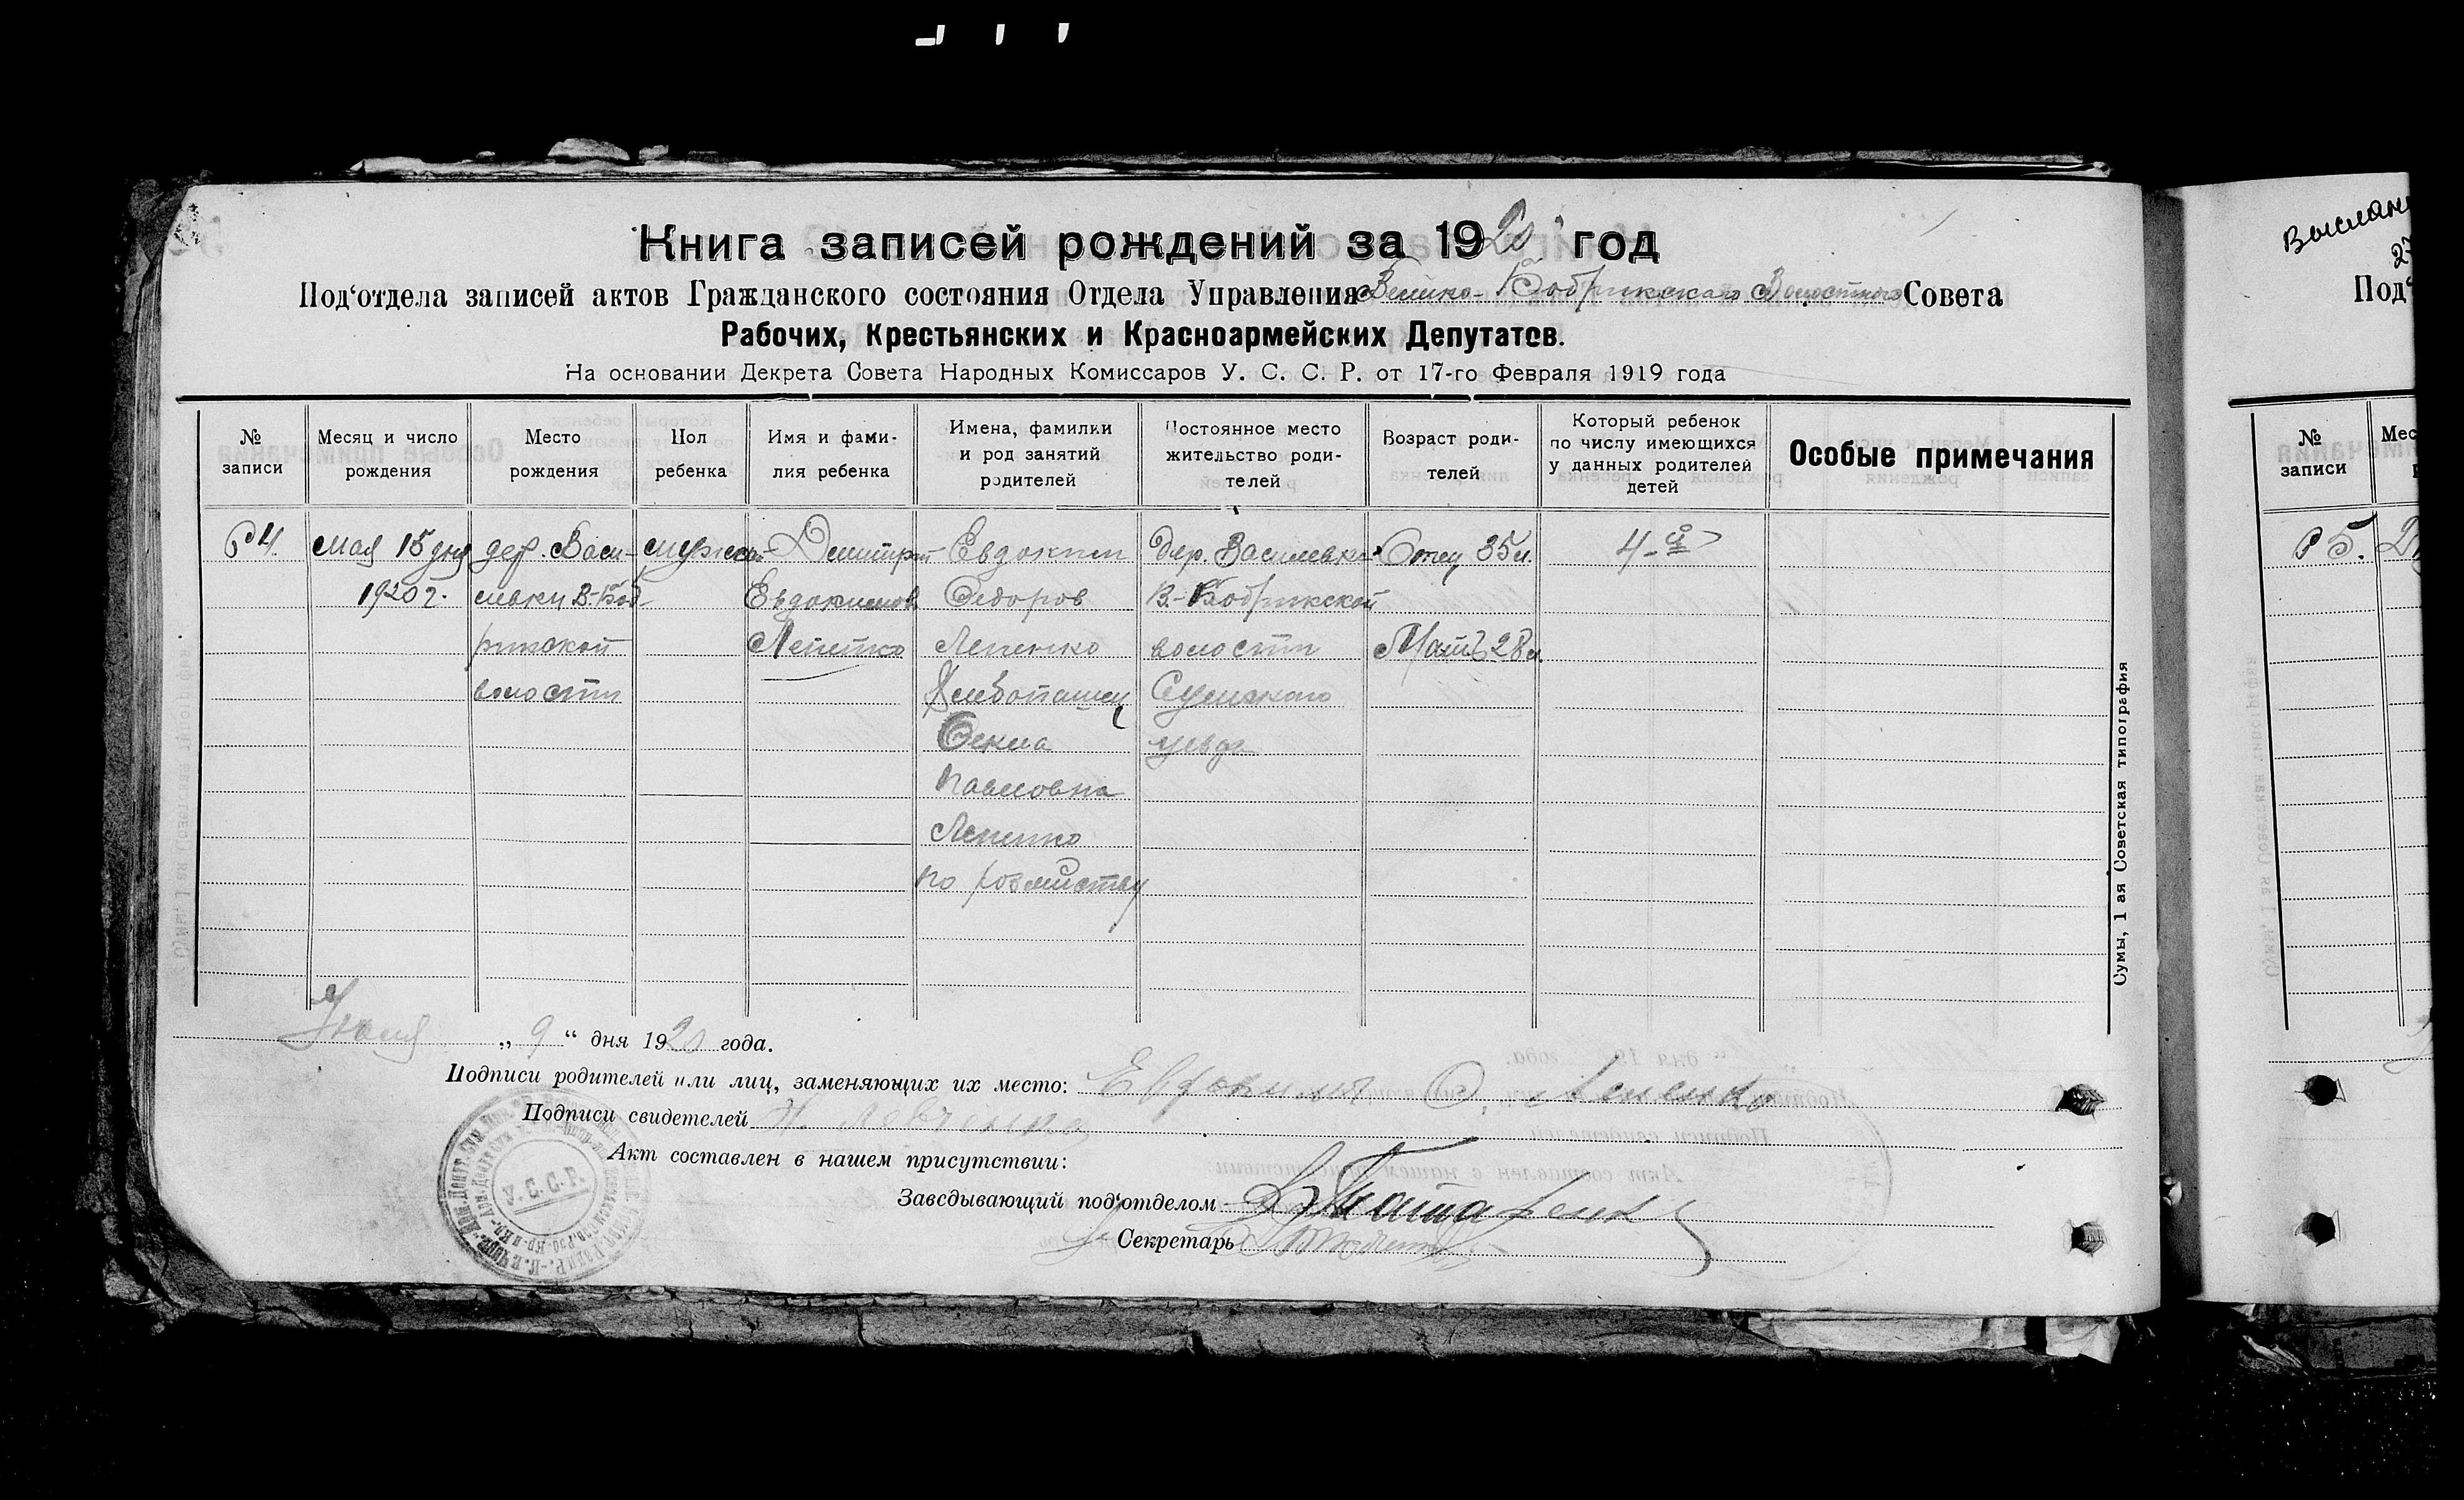 Книга записей рождений за 1920 год
Под‘отдела записей актов Гражданского состояния Отдела Управления Велико-Бобрикскаго Волостного Совета
Рабочих, Крестьянских и Красноармейских Депутатов.
На основании Декрета Совета Народных Комиссаров У. С. С. Р. от 17-го Февраля 1919 года
№ записи
Месяц и число рождения
Место рождения
Пол ребенка
Имя и фами-
лия ребенка
Имена, фамилии
и род занятий
родителей
Постоянное место
жительство роди-
телей
Возраст роди-
телей
Который ребенок
по числу имеющихся
у данных родителей
детей
Особые примечания
4.
мая 15 дня
1920 г.
дер. Васи-
левки В.-Боб-
рикской
волости
мужской
Димитрий
Евдокимов
Лепенко
Евдоким
Федоров
Лепенко
Хлебопашец
Фекла
Павловна
Лепенко
Дер. Василевка
В.-Бобрикской
волости
Сумскаго
уезда
Отец 35 л.
Мать 28 л.
4-й
Июня „ 9 “ дня 1920 года.
Подписи родителей или лиц, заменяющих их место: Евдоким Ф. Лепенко
Подписи свидетелей
Акт составлен в нашем присутствии:
Заведывающий под‘отделом
Секретарь
У.С.С.Р.
Сумы, 1 ая Советская типография
Выслан
27
Под‘
№ записи
Мес
5.